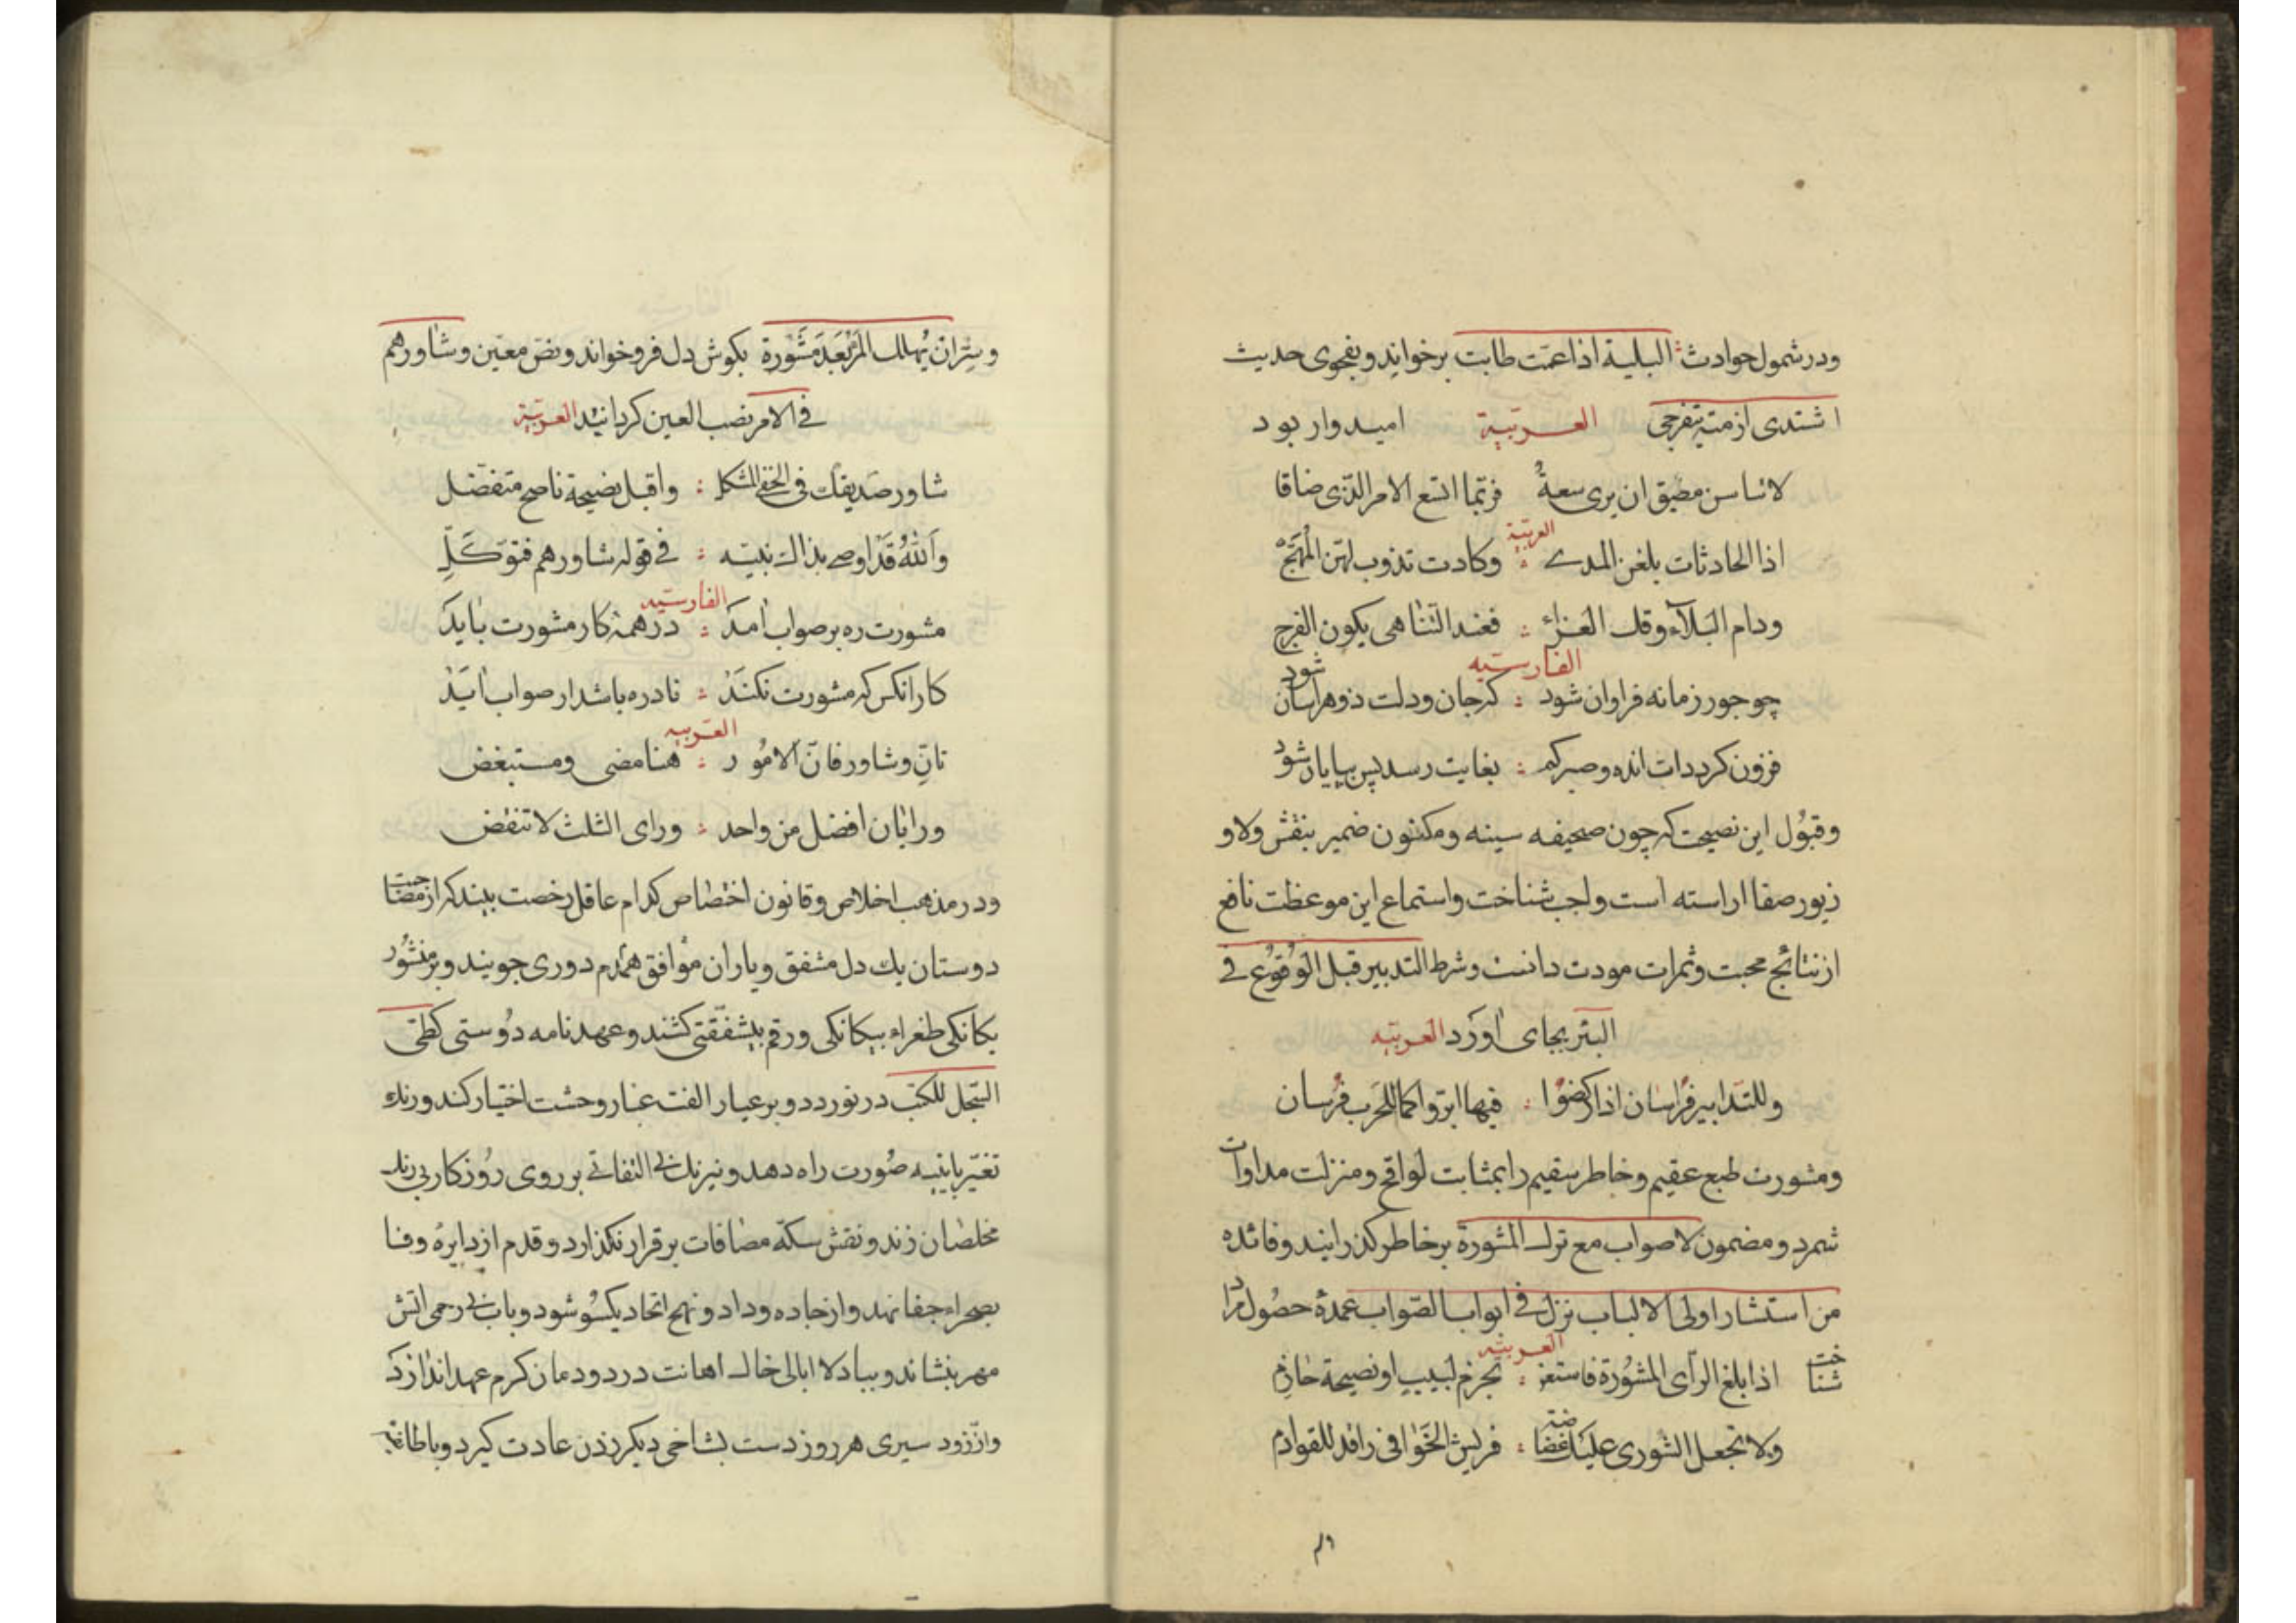 ودر شمول حوادث البلیة اذا عمت طابت برخواند وبفحوی حدیث
اشتدی ازمتة تنفرجی العربیّة امیدوار بود
لا تیاسن مضیق ان یری سعةً فربّما اتسع الامر الذی ضاقا
العربیّة
اذا الحادثات بلغن المدے وکادت تذوب لهن المُهَجْ
ودام البَلآء وقل العزاء فعند التناهی یکون الفرج
الفارسیّه
چو جور زمانه فراوان شود که جان ودلت زو هراسان شود
فزون کردد ات انده وصبر کم بغایت رسد پس بپایان شود
وقبُول این نصیحت که چون صحیفه سینه ومکنون ضمیر بنقش ولا و
زیور صفا اراسته است واجب شناخت واستماع این موعظت نافع
از نتائج محبت وثمرات مودت دانست وشرط التدبیر قبل الوُقوُع فی
البئر بجای اورد العربیّه
وللتدابیر فُرسان اذا رکضُوا فیها ابرّوا کما للحَرب فُرسان
ومشورت طبع عقیم وخاطر سقیم را بمثابت لواقح ومنزلت مداوات
شمرد ومضمون لا صواب مع ترک المشورة بر خاطر کذرانید وفائده
من استشار اولی الالباب نزل فی ابواب الصّواب عمدهٔ حصُول مراد
العربیّه
شناخت اذا بلغ الرّای المشوُرة فاستعن بحزم لبیبٍ او نصیحة حازم
ولا تجعل الشوری علیک غضاضة فریش الخَوافی رافد للقوادم
وام
وسِرّ ان یُهلک المَرْبَعدَ مَشْوَرة بکوش دل فرو خواند ونصّ معیّن وشاورهم
فی الامر نصب العین کردانید العربیّة
شاور صَدیقک فی الخفی المشکل واقبل نصیحة ناصح متفضّل
واَللهُ قَد اوصے بذاک نبیّه فی قوله شاورهم فتوَکَّلِ
الفارسیّه
مشورت ره بر صواب امد در همه کار مشورت باید
کار انکس که مشورت نکند نادره باشد ار صواب اید
العَربیه
تانّ وشاور فانّ الامُور منا مضی ومستبغض
ورایان افضل من واحد ورای الثلث لا تنقض
ودر مذهب اخلاص وقانون اختصاص کدام عاقل رخصت بیند که از مصاحبت
دوستان یك دل مشفق ویاران موافق همدم دوری جویند وبر منشُور
یکانکی طغراء بیکانکی ورقم بیشفقتی کشند وعهد نامه دُوستی کطیّ
السّجل للکتب در نوردد وبر عیار الفت غبار وحشت اختیار کند ورنك
تغیّر بابنیه صُورت راه دهد ونیرنك بی التفاتے بر روی رُوزکار بی رنك
مخلصان زند ونقش سکّه مصافات بر قرار نکذارد وقدم از دایرهٔ وفا
بصحراء جفا نهد واز جاده وداد ونهج اتحاد یکسُو شود وباب بی رحمی اتش
مهر بنشاند وبباد لا ابالی خاك اهانت در دودمان کرم عهد اندازد
واز زود سیری هر روز دست بشاخی دیکر زدن عادت کیرد وبا